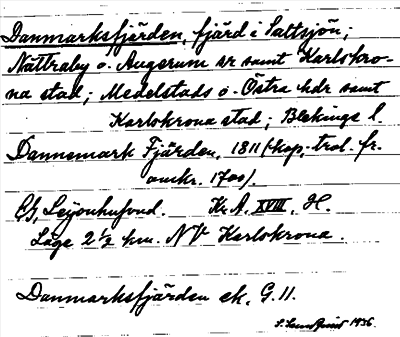 Danmarksfjärden, fjärd i Saltsjön;
Nättraby o. Augerum sr samt Karlskro-
na stad; Medelstads o. Östra hdr samt
Karlskrona stad; Blekinge l.
Dannemark Fjärden, 1811 (kop. trol. fr.
omkr. 1700).
C.G. Leijonhufvud. Kr.A. XVIII. H.
Läge 2½ km. NV Karlskrona.
Danmarksfjärden ek. G. 11.
S. Lundquist 1936.